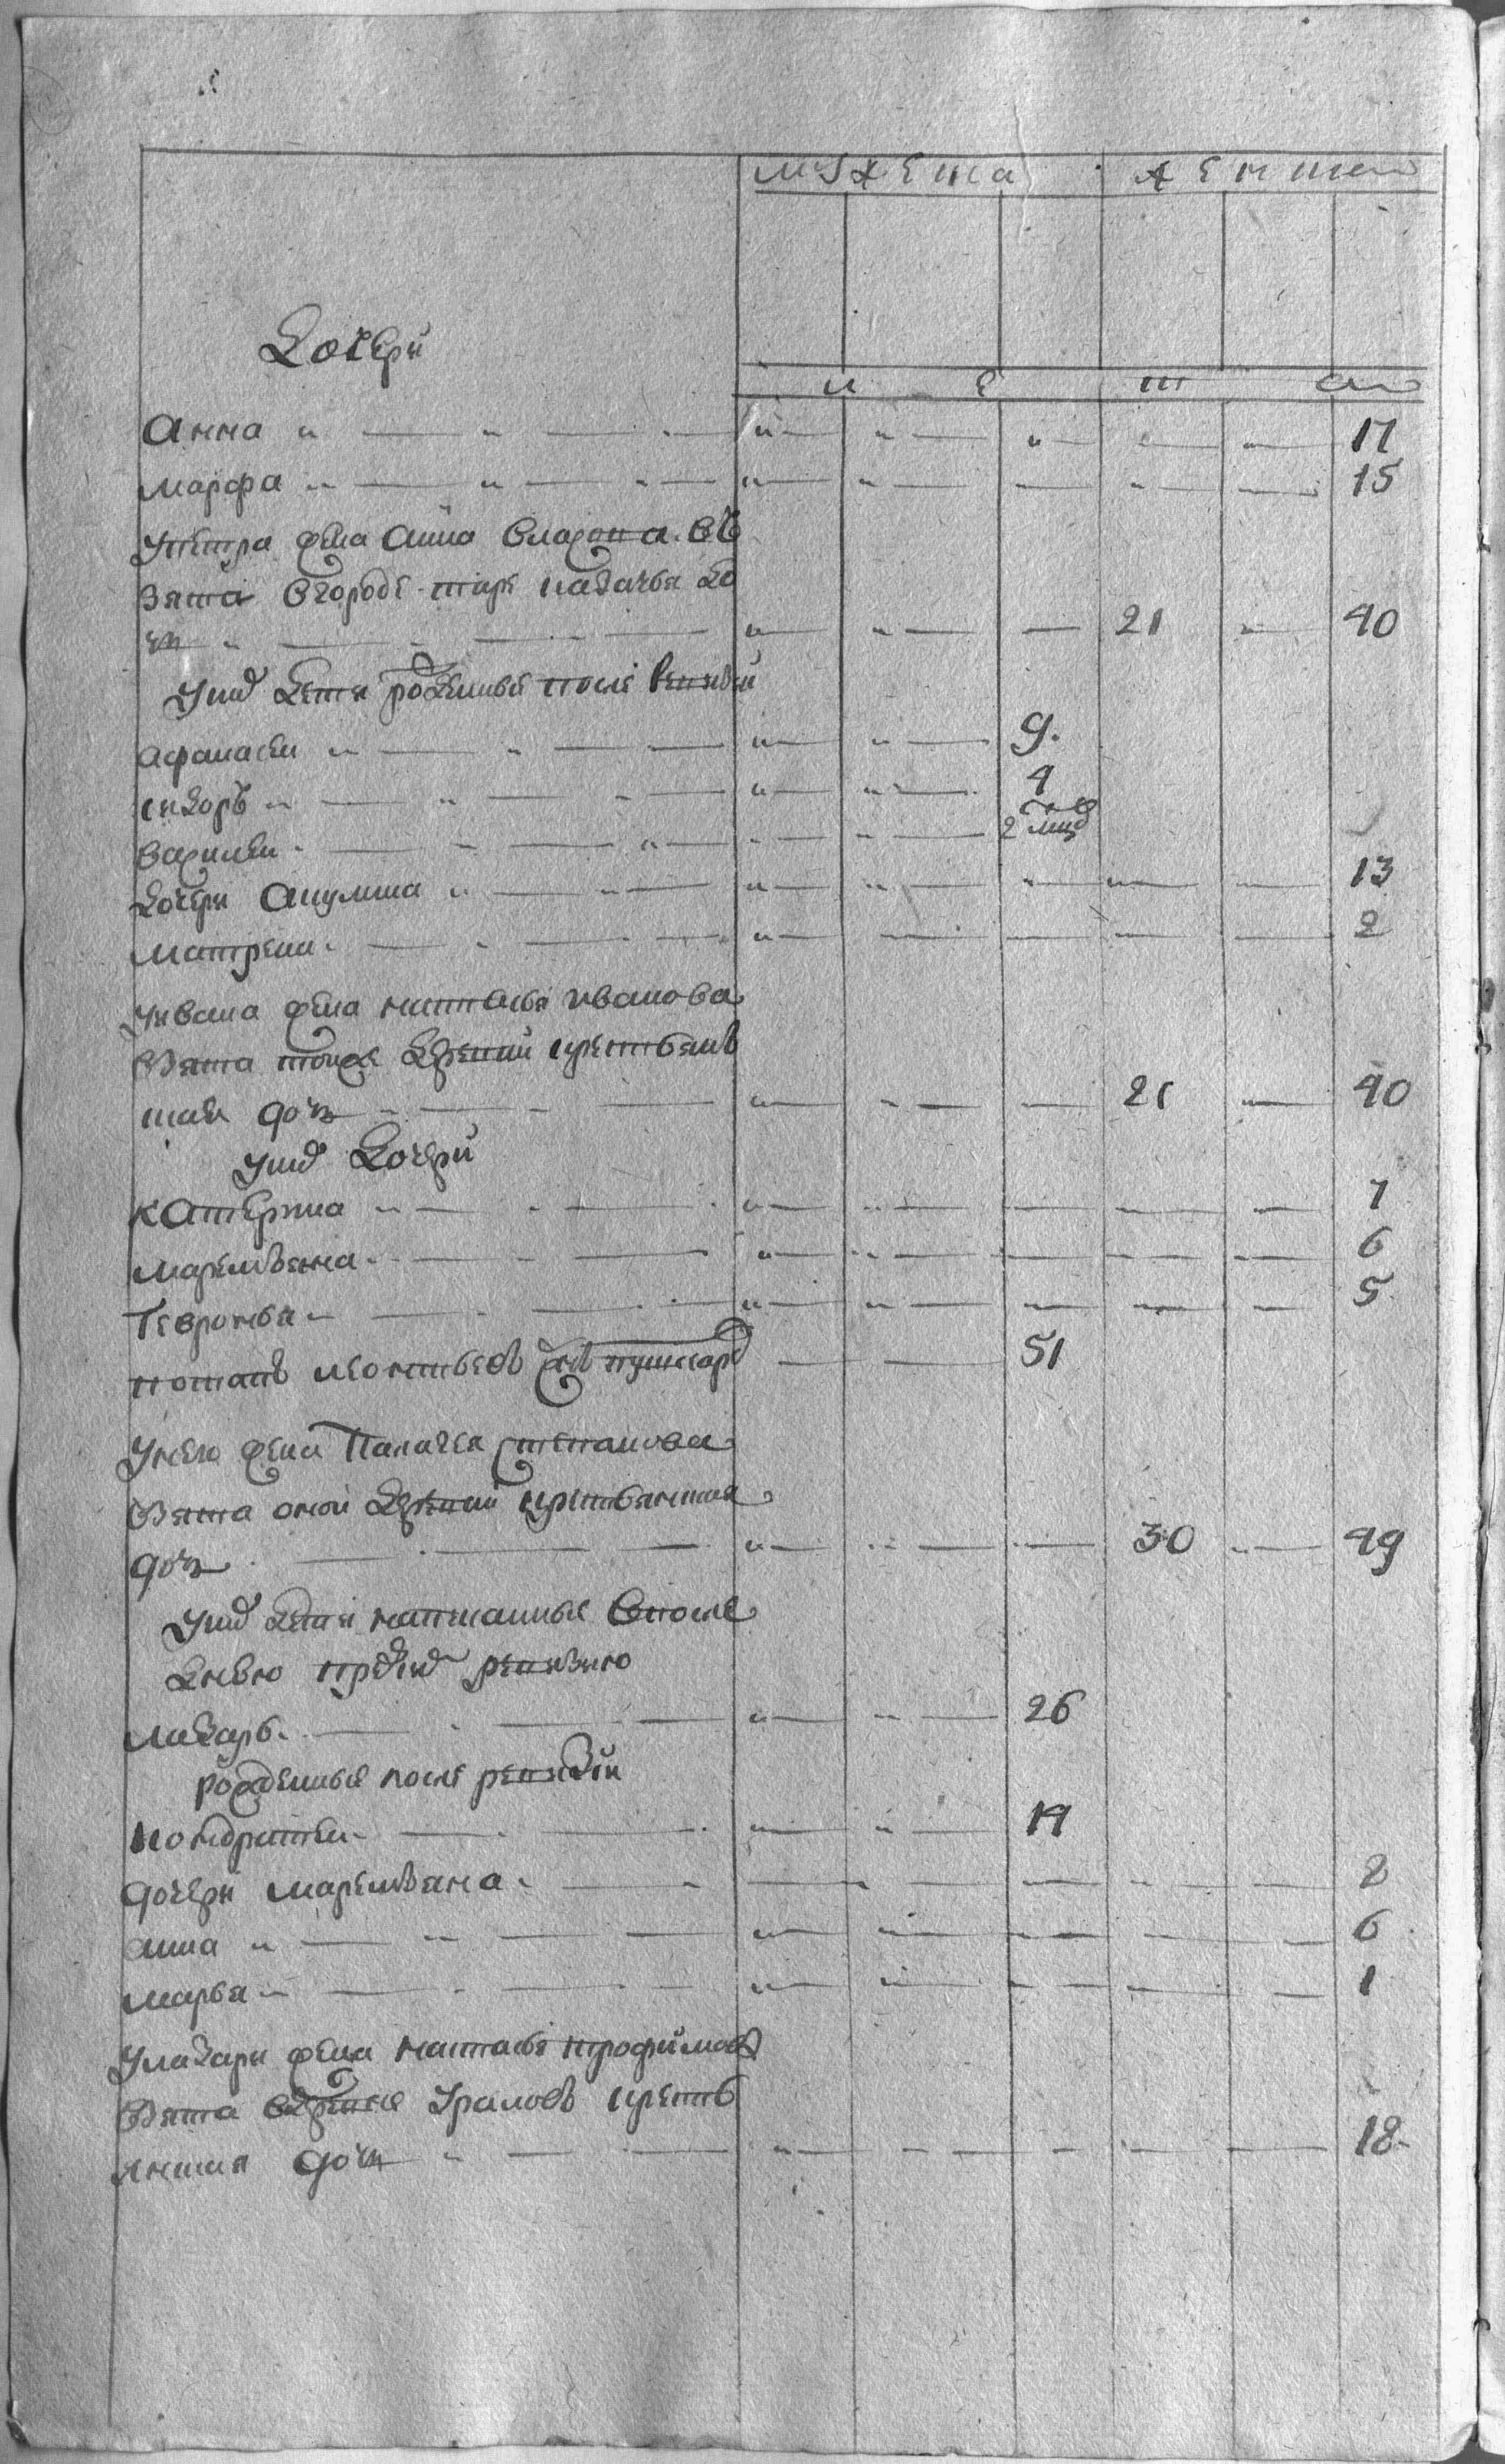 мужеска женска
Дочери
л е т а
Анна 17
марфа 15
Упетра жена Анна
взята Вгороде казачья до
чь 21 40
Униx дети рожденныя после ревизiи
афанасеи 9.
сидоръ 4
василеи 2
дочери Акулина 13
матрена 2
Уивана жена наталья иванова
взята тоже деревни крестьянъ
ская дочь 21 40
Униx Дочери
Катерина 7
маремьяна 6
Февронья 5
потапъ леонтьевъ сынъ пушкарев 51
Унево жена Палагея степанова
взята оной деревни крестьянская
дочь 30 49
Униx дети написанныя впосле
днею пред сим ревизию
макаръ 26
рожденныя после ревизiи
Кондратеи 14
дочери маремьяна 8
анна 6
марья 1
Умакара жена наталья трофимова
взята вдеревне крестъ
янская дочь 18